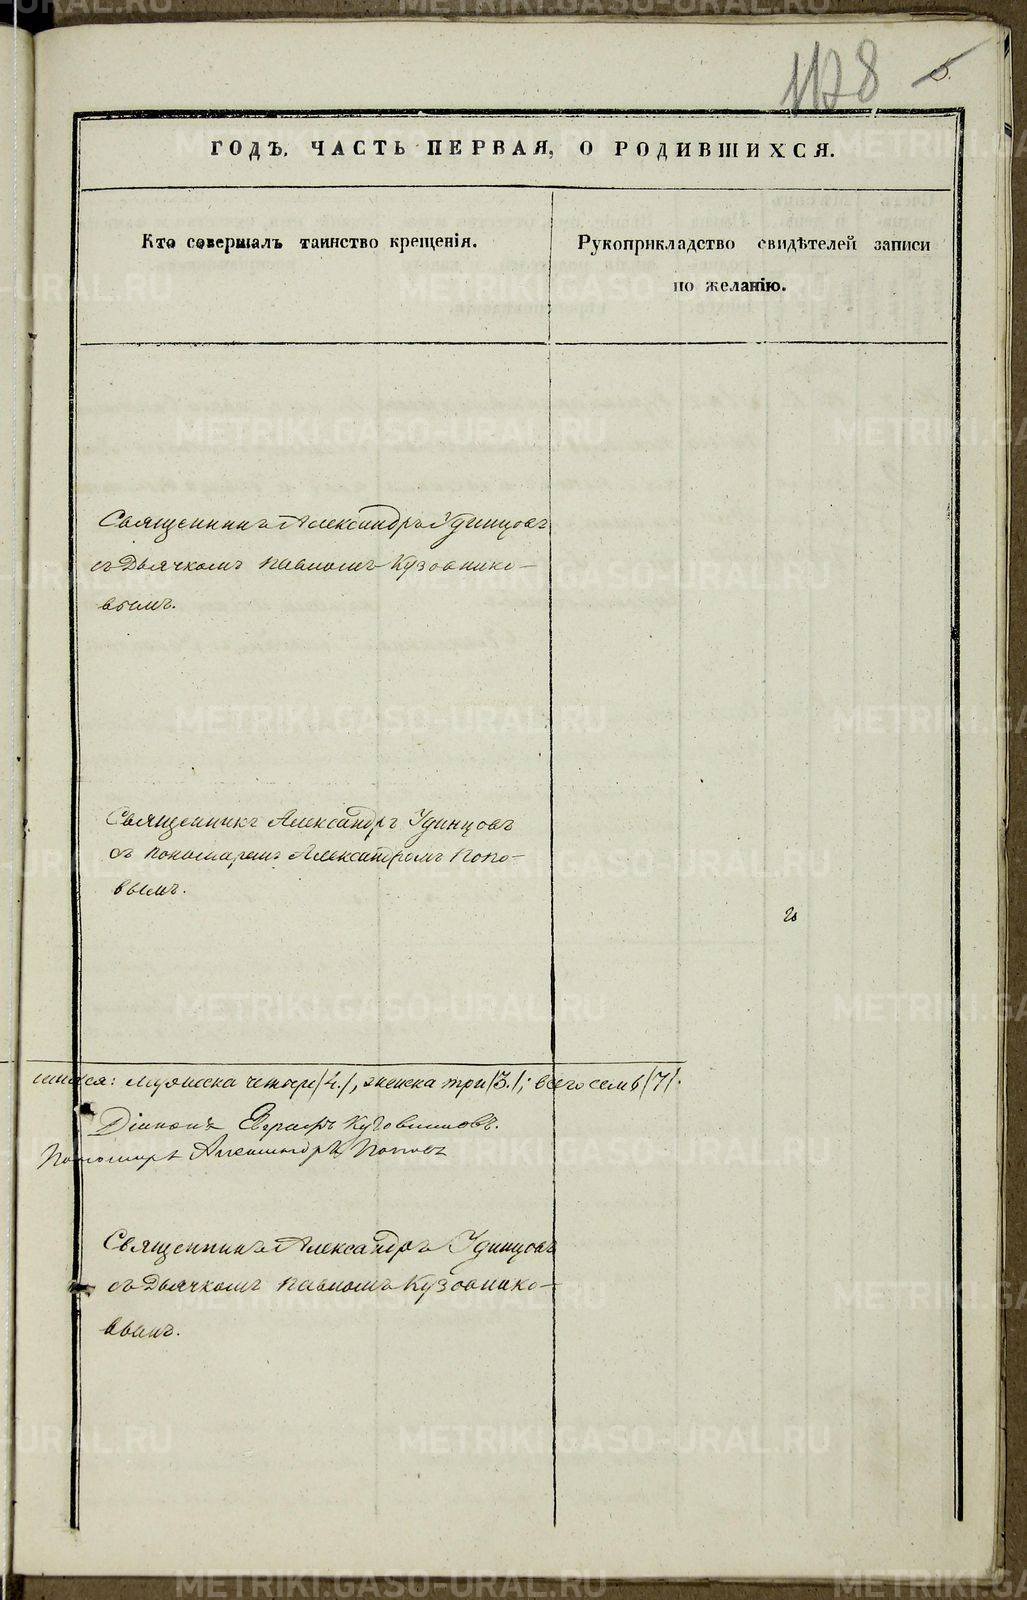 1178 5.
ГОДЪ, ЧАСТЬ ПЕРВАЯ, О РОДИВШИХСЯ.
Кто совершалъ таинство крещенія.
Рукоприкладство свидѣтелей записи
по желанію.
Священникъ Александръ Удинцовъ
съ Дьячкомъ Павломъ Кузовнико-
вымъ.
Священникъ Александръ Удинцовъ
съ пономаремъ Александромъ Попо-
вымъ.
шихся: мужеска четыре /4./, женска три /3./; всего семь /7/.
Діаконъ Евграфъ Кузовниковъ.
Пономарь Александръ Поповъ
Священникъ Александръ Удинцовъ
съ Дьячкомъ Павломъ Кузовнико-
вымъ.
METRIKI.GASO-URAL.RU